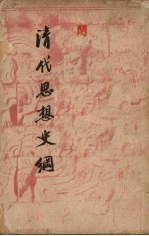 清代思想史綱